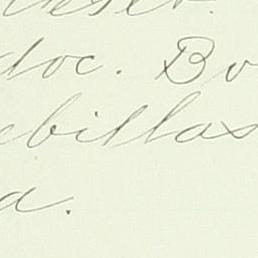 doc. Bo
ebillas
a.